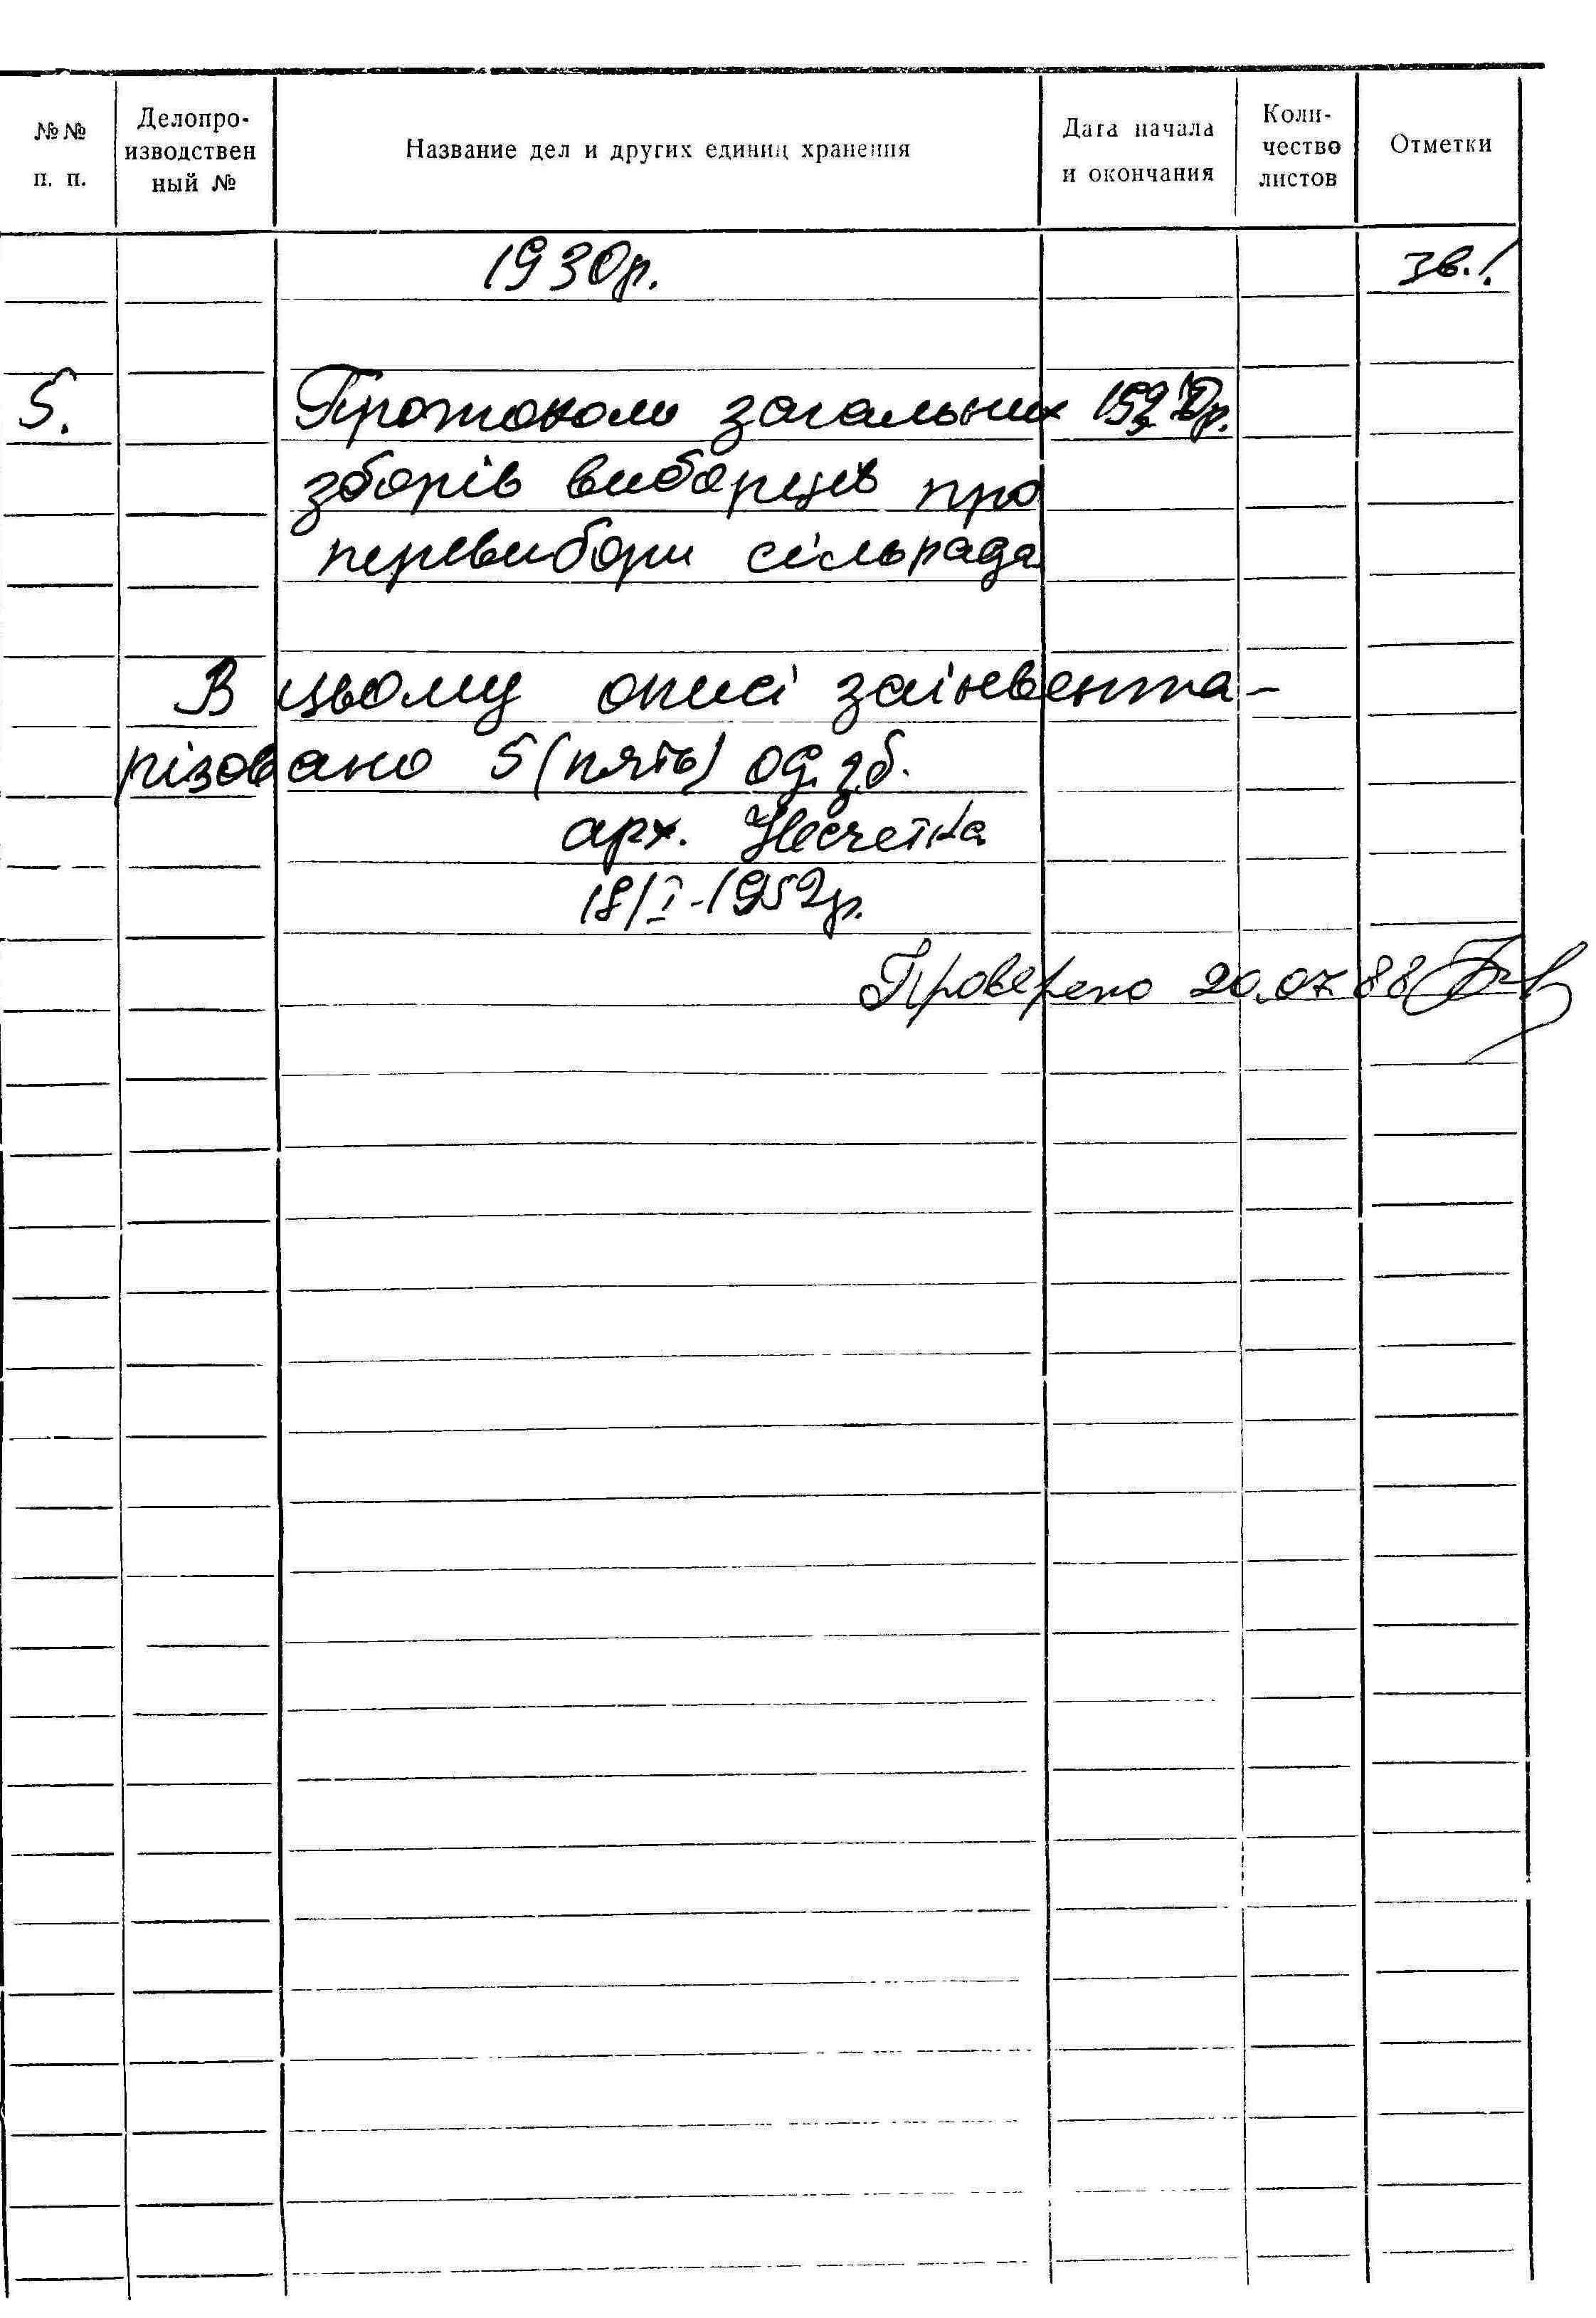 №№ п. п.
Делопро-
изводствен
ный №
Название дел и других единиц хранения
Дата начала
и окончания
Коли-
чество
листов
Отметки
1930р. зв.!
5. Протоколи загальних 1930р.
зборів виборців про
перевибори сільрада
В цьому описі заінвента-
різовано 5 (пять) од. зб.
арх. Нечетка
18/I-1952р.
Проверено 20.07.88